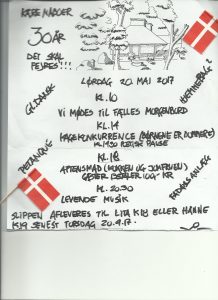 KÆRE NABOER
30 ÅR
DET SKAL
FEJRES!!!
LØRDAG 20. MAJ 2017
KL. 10
VI MØDES TIL FÆLLES MORGENBORD
KL. 14
KAGEKONKURRENCE (BØRNENE ER DOMMERE)
KL. 1730 POETISK PAUSE
KL. 18
AFTENSMAD (MUNKEN OG JOMFRUEN)
GÆSTER BETALER 100 KR
KL. 20.30
LEVENDE MUSIK
SLIPPEN AFLEVERES TIL LITA K18 ELLER HANNE
K19 SENEST TORSDAG 20.4.17.
GL. DANSK
PETANQUE
FADØLSANLÆG